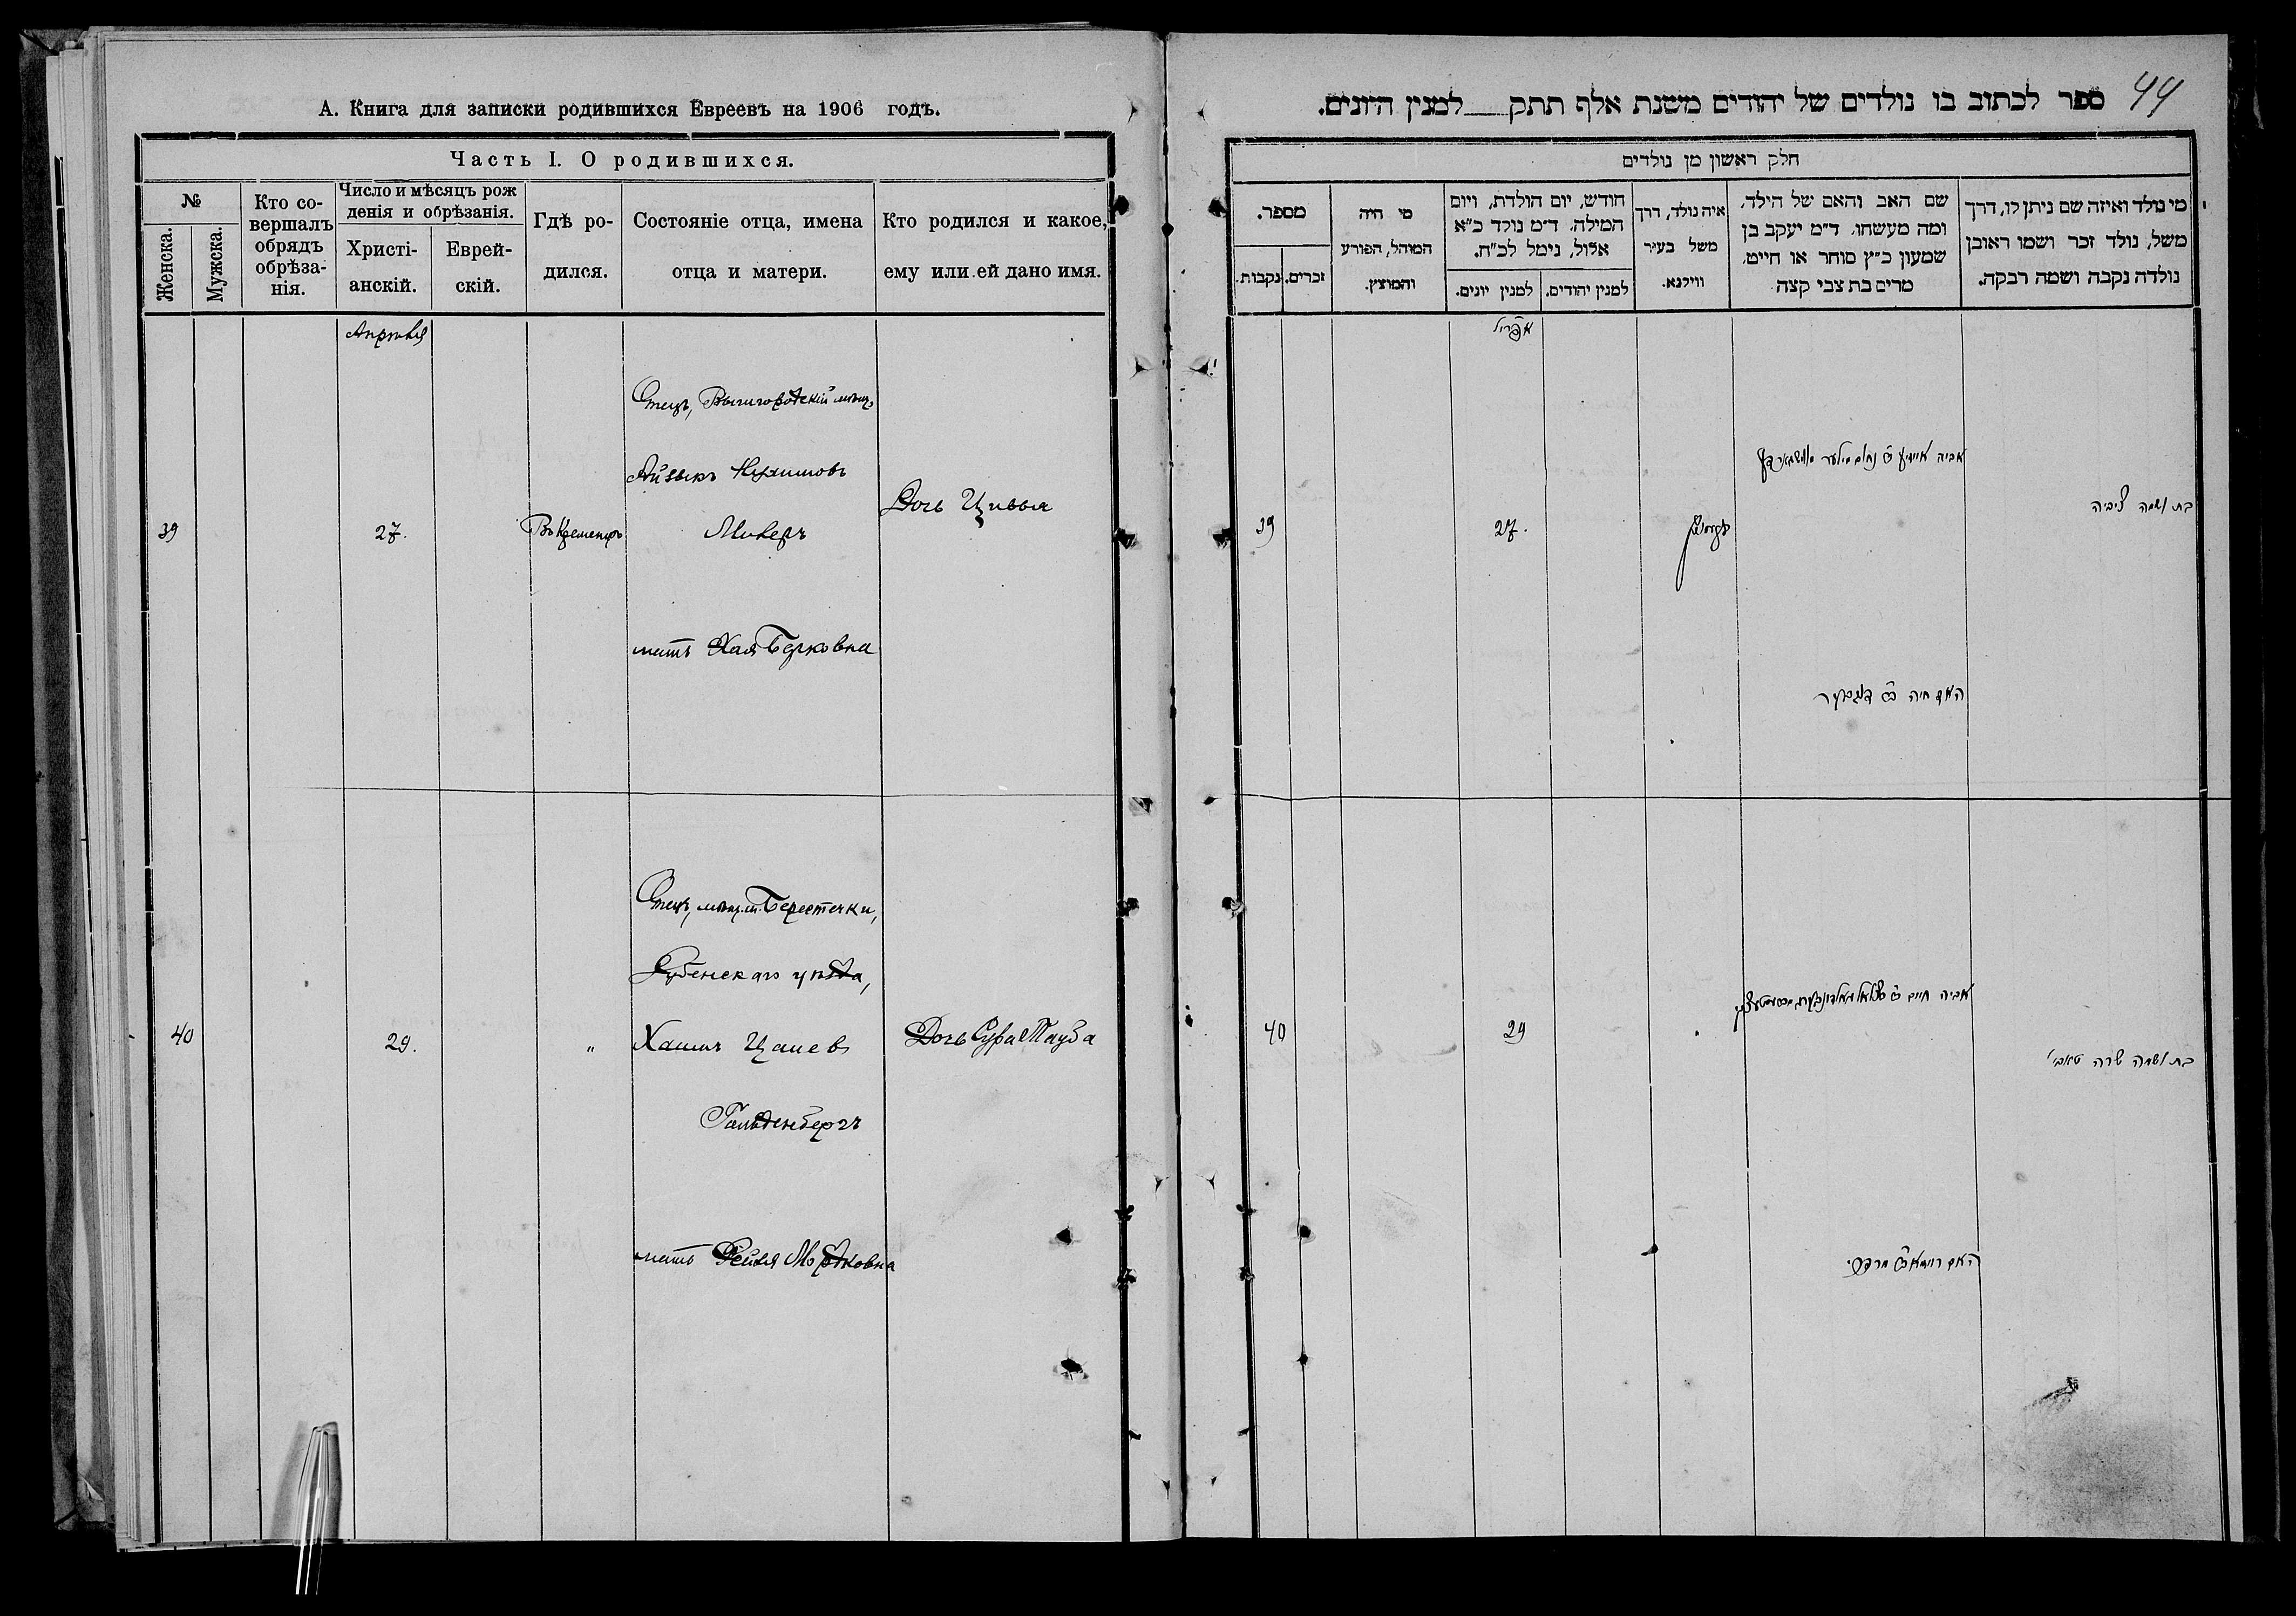 А. Книга для записки родившихся Евреевъ на 1906 годъ.
Часть I. О родившихся.
№
Женска.
Мужска.
Кто со-
вершалъ
обрядъ
обрѣза-
нія.
Число и мѣсяцъ рож
денія и обрѣзанія.
Христі-
анскій.
Еврей-
скій.
Гдѣ ро-
дился.
Состояніе отца, имена
отца и матери.
Кто родился и какое,
ему или ей дано имя.
Апрѣля
39
27.
Въ Кременцѣ
Отецъ, Вышгородскій мѣщ.
Айзыкъ Нухимовъ
Милеръ
мать Хая Берковна
Дочь Цивья
40
29.
"
Отецъ, мѣщ. м. Берестечки,
Дубенскаго уѣзда,
Хаимъ
Гольденбергъ
мать Рейзя Мордковна
Дочь Сура Тауба
44
ספר לכתוב בו נולדים של יהודים משנת אלף תתק למנין היונים.
חלק ראשון מן נולדים
מספר.
נקבות.
זכרים.
מי היה
המוהל, הפורע
והמוצץ.
חודש, יום הולדת, ויום
המילה. ד״מ נולד כ״א
אלול, נימל לכ״ח.
למנין יונים.
למנין יהודים.
איה נולד, דרך
משל בעיר
ווילנא.
שם האב והאם של הילד,
ומה מעשהו, ד״מ יעקב בן
שמעון כ״ץ סוחר או חייט,
מרים בת צבי קצה
מי נולד ואיזה שם ניתן לו, דרך
משל, נולד זכר ושמו ראובן
נולדה נקבה ושמה רבקה.
אפריל
39
27.
אביה אייזיק ב׳ נחום מילער
האם חיה ב׳
בת ושמה ציביה
40
29
אביה חיים ב׳
האם רויזא ב׳ מרדכי
בת ושמה שרה טאבי